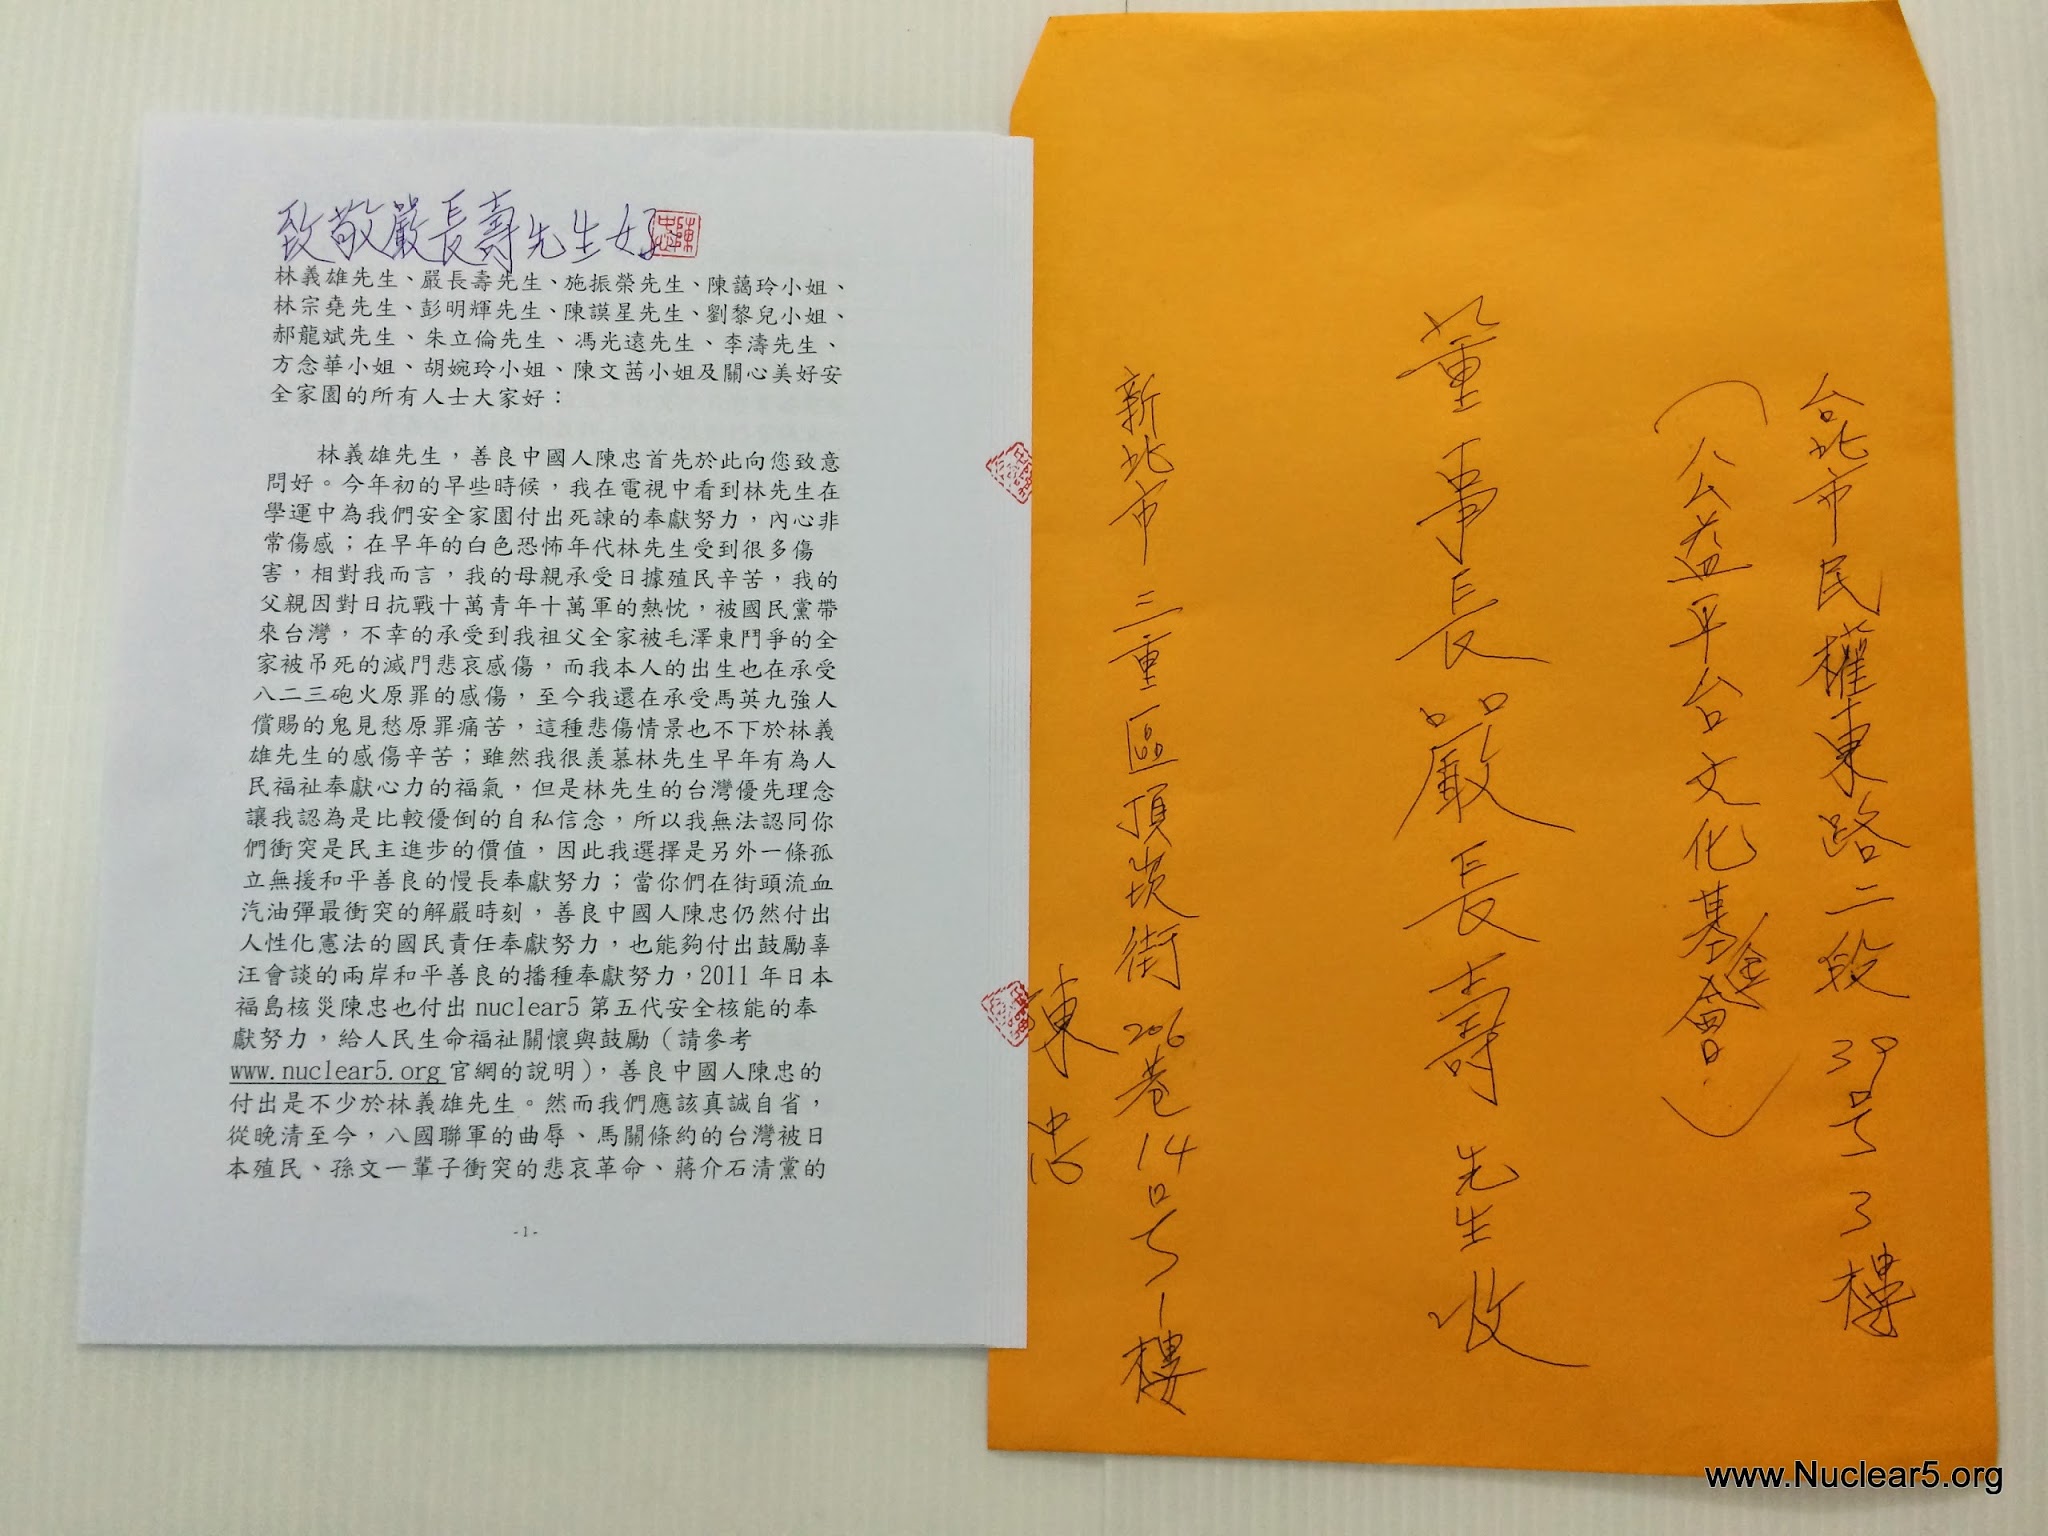 致敬嚴長壽先生好
陳忠
林義雄先生、嚴長壽先生、施振榮先生、陳藹玲小姐、
林宗堯先生、彭明輝先生、陳謨星先生、劉黎兒小姐、
郝龍斌先生、朱立倫先生、馮光遠先生、李濤先生、
方念華小姐、胡婉玲小姐、陳文茜小姐及關心美好安
全家園的所有人士大家好：
林義雄先生，善良中國人陳忠首先於此向您致意
問好。今年初的早些時候，我在電視中看到林先生在
學運中為我們安全家園付出死諫的奉獻努力，內心非
常傷感；在早年的白色恐怖年代林先生受到很多傷
害，相對我而言，我的母親承受日據殖民辛苦，我的
父親因對日抗戰十萬青年十萬軍的熱忱，被國民黨帶
來台灣，不幸的承受到我祖父全家被毛澤東鬥爭的全
家被吊死的滅門悲哀感傷，而我本人的出生也在承受
八二三砲火原罪的感傷，至今我還在承受馬英九強人
償賜的鬼見愁原罪痛苦，這種悲傷情景也不下於林義
雄先生的感傷辛苦；雖然我很羨慕林先生早年有為人
民福祉奉獻心力的福氣，但是林先生的台灣優先理念
讓我認為是比較優倒的自私信念，所以我無法認同你
們衝突是民主進步的價值，因此我選擇是另外一條孤
立無援和平善良的慢長奉獻努力；當你們在街頭流血
汽油彈最衝突的解嚴時刻，善良中國人陳忠仍然付出
人性化憲法的國民責任奉獻努力，也能夠付出鼓勵辜
汪會談的兩岸和平善良的播種奉獻努力，2011 年日本
福島核災陳忠也付出 nuclear5 第五代安全核能的奉
獻努力，給人民生命福祉關懷與鼓勵（請參考
www.nuclear5.org 官網的說明），善良中國人陳忠的
付出是不少於林義雄先生。然而我們應該真誠自省，
從晚清至今，八國聯軍的曲辱、馬關條約的台灣被日
本殖民、孫文一輩子衝突的悲哀革命、蔣介石清黨的
-1-
台北市民權東路二段39号3樓
（公益平台文化基金會）
董事長嚴長壽先生收
新北市三重區頂崁街206巷14号1樓
陳忠
www.Nuclear5.org